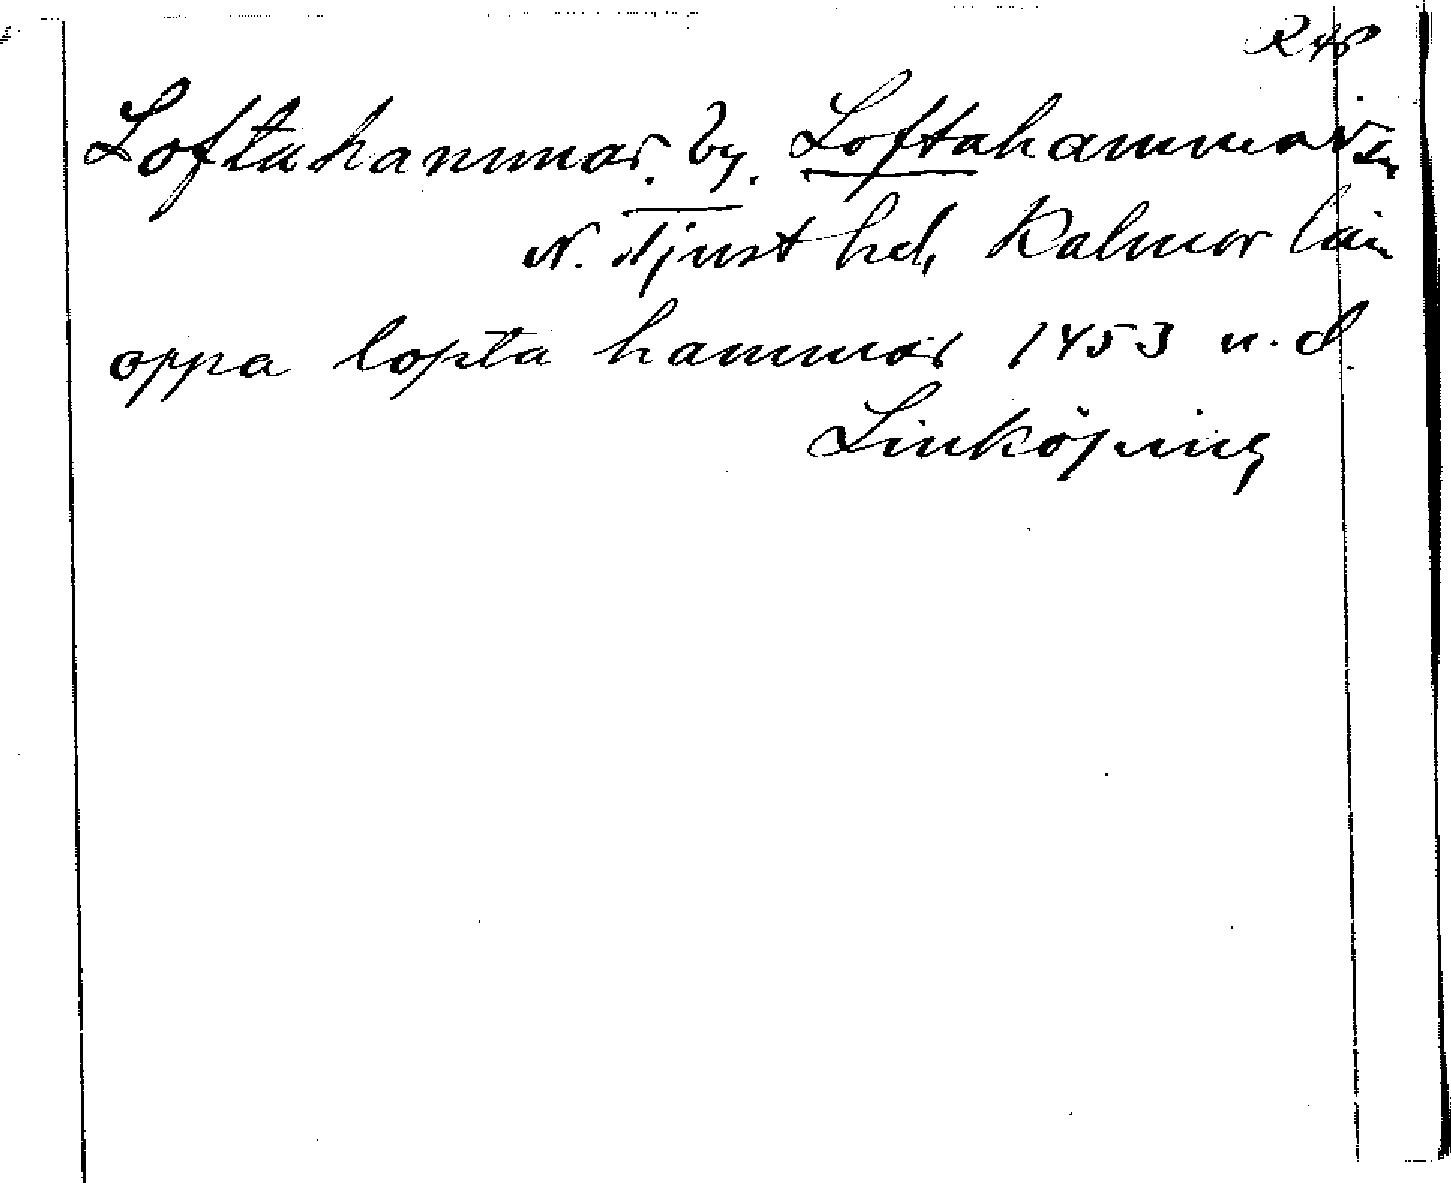 Rap
Loftahammar. by. Loftahammar sn
N. Tjust hd, Kalmar län
oppa lopta hammar 1453 u. d.
Linköping